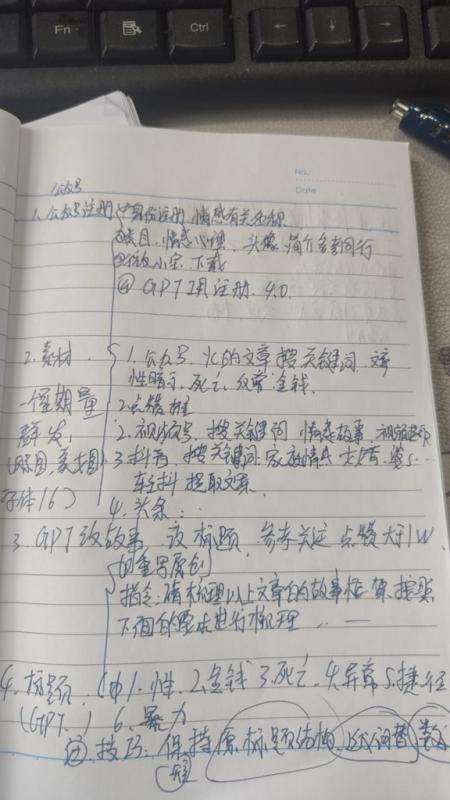 Fn
Ctrl
No.
Date
公众号
1. 公众号注册 ①身份注册 情感有关名称
②类目, 情感心理, 头像 简介参考同行
③ 小宝 下载
④ GPT 工具 注册 4.0
2. 素材
1. 公众号 火的文章 搜关键词
性暗示, 死亡, 金钱.
2. 视频号, 搜关键词 情感故事, 视频
群发
3. 抖音, 搜关键词 家庭情感
轻抖 提取文案
字体16)
4. 头条:
3. GPT 改故事 改标题 参考关注 点赞 大于1W
重写原创
指令: 请梳理以上文章的故事框架, 按照
下面的要求进行梳理
4. 标题 (由 1. 性 2. 金钱 3. 死亡 4. 异常 5. 捷径
(GPT ) 6. 暴力
技巧: 保持原标题结构, 近义词替